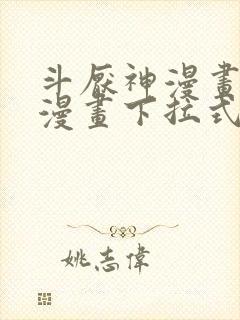 斗厭神漫畫
漫畫下拉式
姚志偉